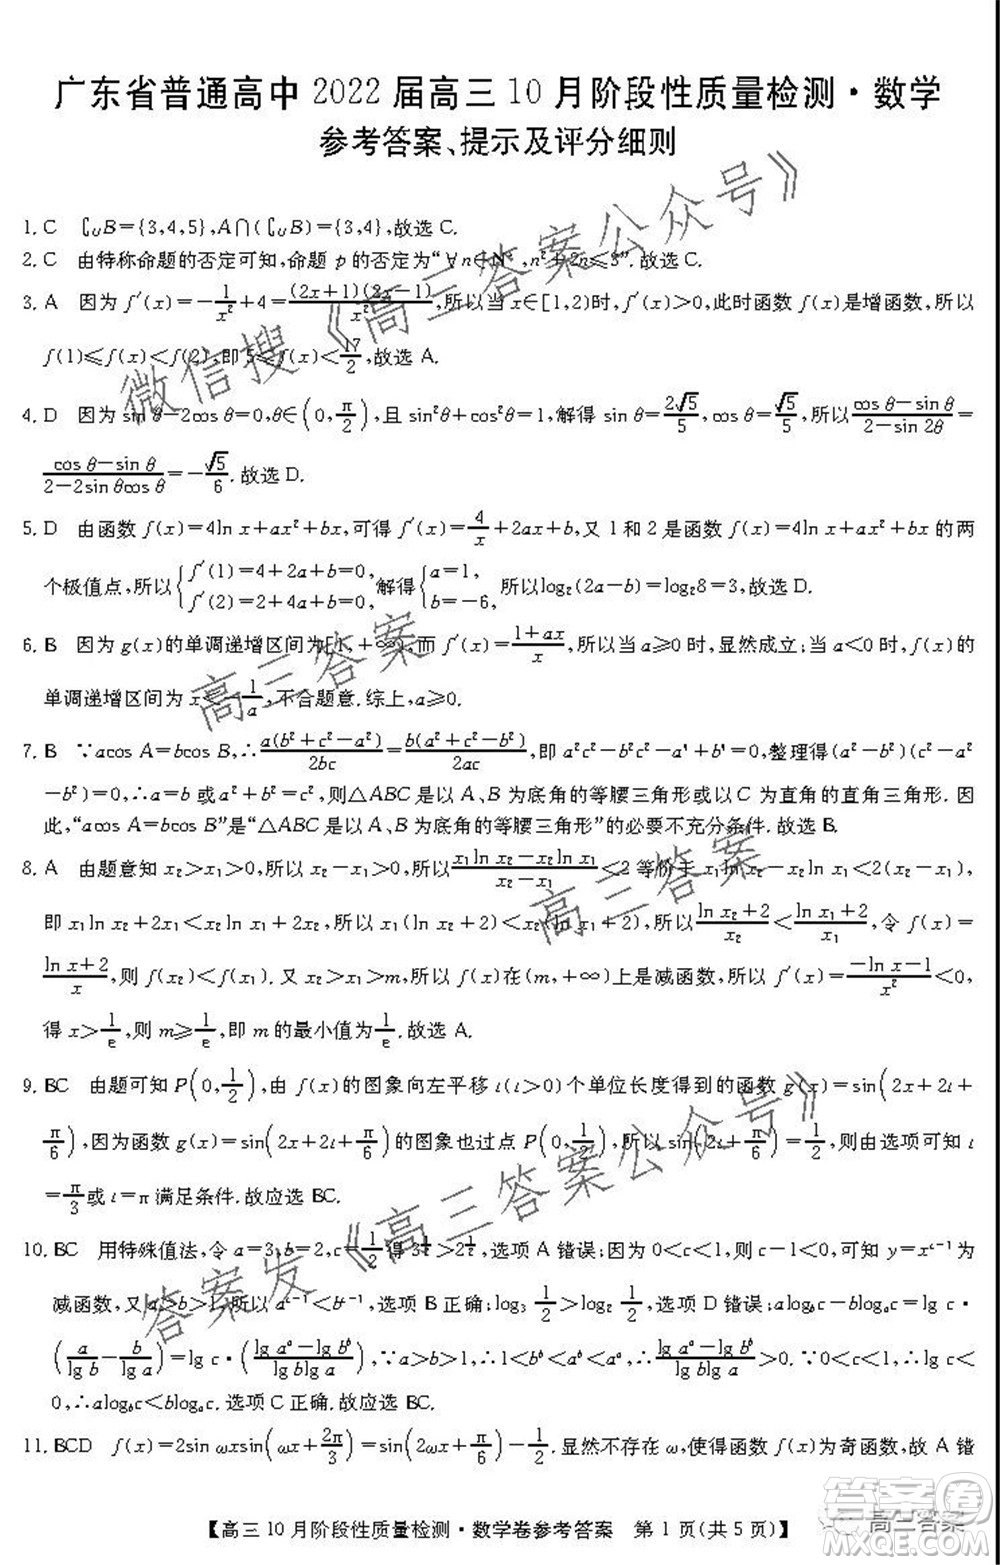 广东省普通高中 2022 届高三 10 月阶段性质量检测·数学
参考答案、提示及评分细则
1. C ∁UB={3,4,5},A∩(∁UB)={3,4},故选 C.
2. C 由特称命题的否定可知,命题 p 的否定为“∀n∈N²,n²+2n≤3”.故选 C.
3. A 因为 f′(x)=-1/x²+4=(2x+1)(2x-1)/x²,所以当 x∈[1,2)时,f′(x)>0,此时函数 f(x)是增函数,所以
f(1)≤f(x)<f(2),即 5≤f(x)<17/2,故选 A.
4. D 因为 sin θ-2cos θ=0,θ∈(0,π/2),且 sin²θ+cos²θ=1,解得 sin θ=2√5/5,cos θ=√5/5,所以(cos θ-sin θ)/(2-sin 2θ)=
(cos θ-sin θ)/(2-2sin θcos θ)=-√5/6.故选 D.
5. D 由函数 f(x)=4ln x+ax²+bx,可得 f′(x)=4/x+2ax+b,又 1 和 2 是函数 f(x)=4ln x+ax²+bx 的两
个极值点,所以{f′(1)=4+2a+b=0, f′(2)=2+4a+b=0, 解得{a=1, b=-6, 所以log₂(2a-b)=log₂8=3,故选 D.
6. B 因为 g(x)的单调递增区间为[1,+∞),而 f′(x)=(1+ax)/x,所以当 a≥0 时,显然成立;当 a<0 时,f(x)的
单调递增区间为 x<-1/a,不合题意.综上,a≥0.
7. B ∵acos A=bcos B,∴a(b²+c²-a²)/2bc=b(a²+c²-b²)/2ac,即 a²c²-b²c²-a⁴+b⁴=0,整理得(a²-b²)(c²-a²
-b²)=0,∴a=b 或a²+b²=c²,则△ABC 是以 A、B 为底角的等腰三角形或以 C 为直角的直角三角形. 因
此,“acos A=bcos B”是“△ABC 是以 A、B 为底角的等腰三角形”的必要不充分条件.故选 B.
8. A 由题意知 x₂>x₁>0,所以 x₂-x₁>0,所以(x₁ln x₂-x₂ln x₁)/(x₂-x₁)<2 等价于 x₁ln x₂-x₂ln x₁<2(x₂-x₁),
即 x₁ln x₂+2x₁<x₂ln x₁+2x₂,所以 x₁(ln x₂+2)<x₂(ln x₁+2),所以(ln x₂+2)/x₂<(ln x₁+2)/x₁,令 f(x)=
(ln x+2)/x,则 f(x₂)<f(x₁).又 x₂>x₁>m,所以 f(x)在(m,+∞)上是减函数,所以 f′(x)=(-ln x-1)/x²<0,
得 x>1/e,则 m≥1/e,即 m 的最小值为1/e.故选 A.
9. BC 由题可知 P(0,1/2),由 f(x)的图象向左平移 t(t>0)个单位长度得到的函数 g(x)=sin(2x+2t+
π/6),因为函数 g(x)=sin(2x+2t+π/6)的图象也过点 P(0,1/2),所以 sin(2t+π/6)=1/2,则由选项可知 t
=π/3或 t=π 满足条件.故应选 BC.
10. BC 用特殊值法,令 a=3,b=2,c=1/2得 3^(1/2)>2^(1/2),选项 A 错误;因为 0<c<1,则 c-1<0,可知 y=x^(c-1)为
减函数,又 a>b>1,所以 a^(c-1)<b^(c-1),选项 B 正确;log₃ 1/2>log₂ 1/2,选项 D 错误;alog_b c-blog_a c=lg c·
(a/lg b-b/lg a)=lg c·((lg aᵃ-lg bᵇ)/(lg blg a)),∵a>b>1,∴1<bᵇ<aᵇ<aᵃ,∴(lg aᵃ-lg bᵇ)/(lg blg a)>0,∵0<c<1,∴lg c<
0,∴alog_b c<blog_a c,选项 C 正确,故选 BC.
11. BCD f(x)=2sin ωxsin(ωx+2π/3)=sin(2ωx+π/6)-1/2.显然不存在 ω,使得函数 f(x)为奇函数,故 A 错
【高三 10 月阶段性质量检测·数学卷参考答案 第 1 页(共 5 页)】
微信搜《高三答案公众号》
高三答案
高三答案
答案发《高三答案公众号》
答案圈
高三答案